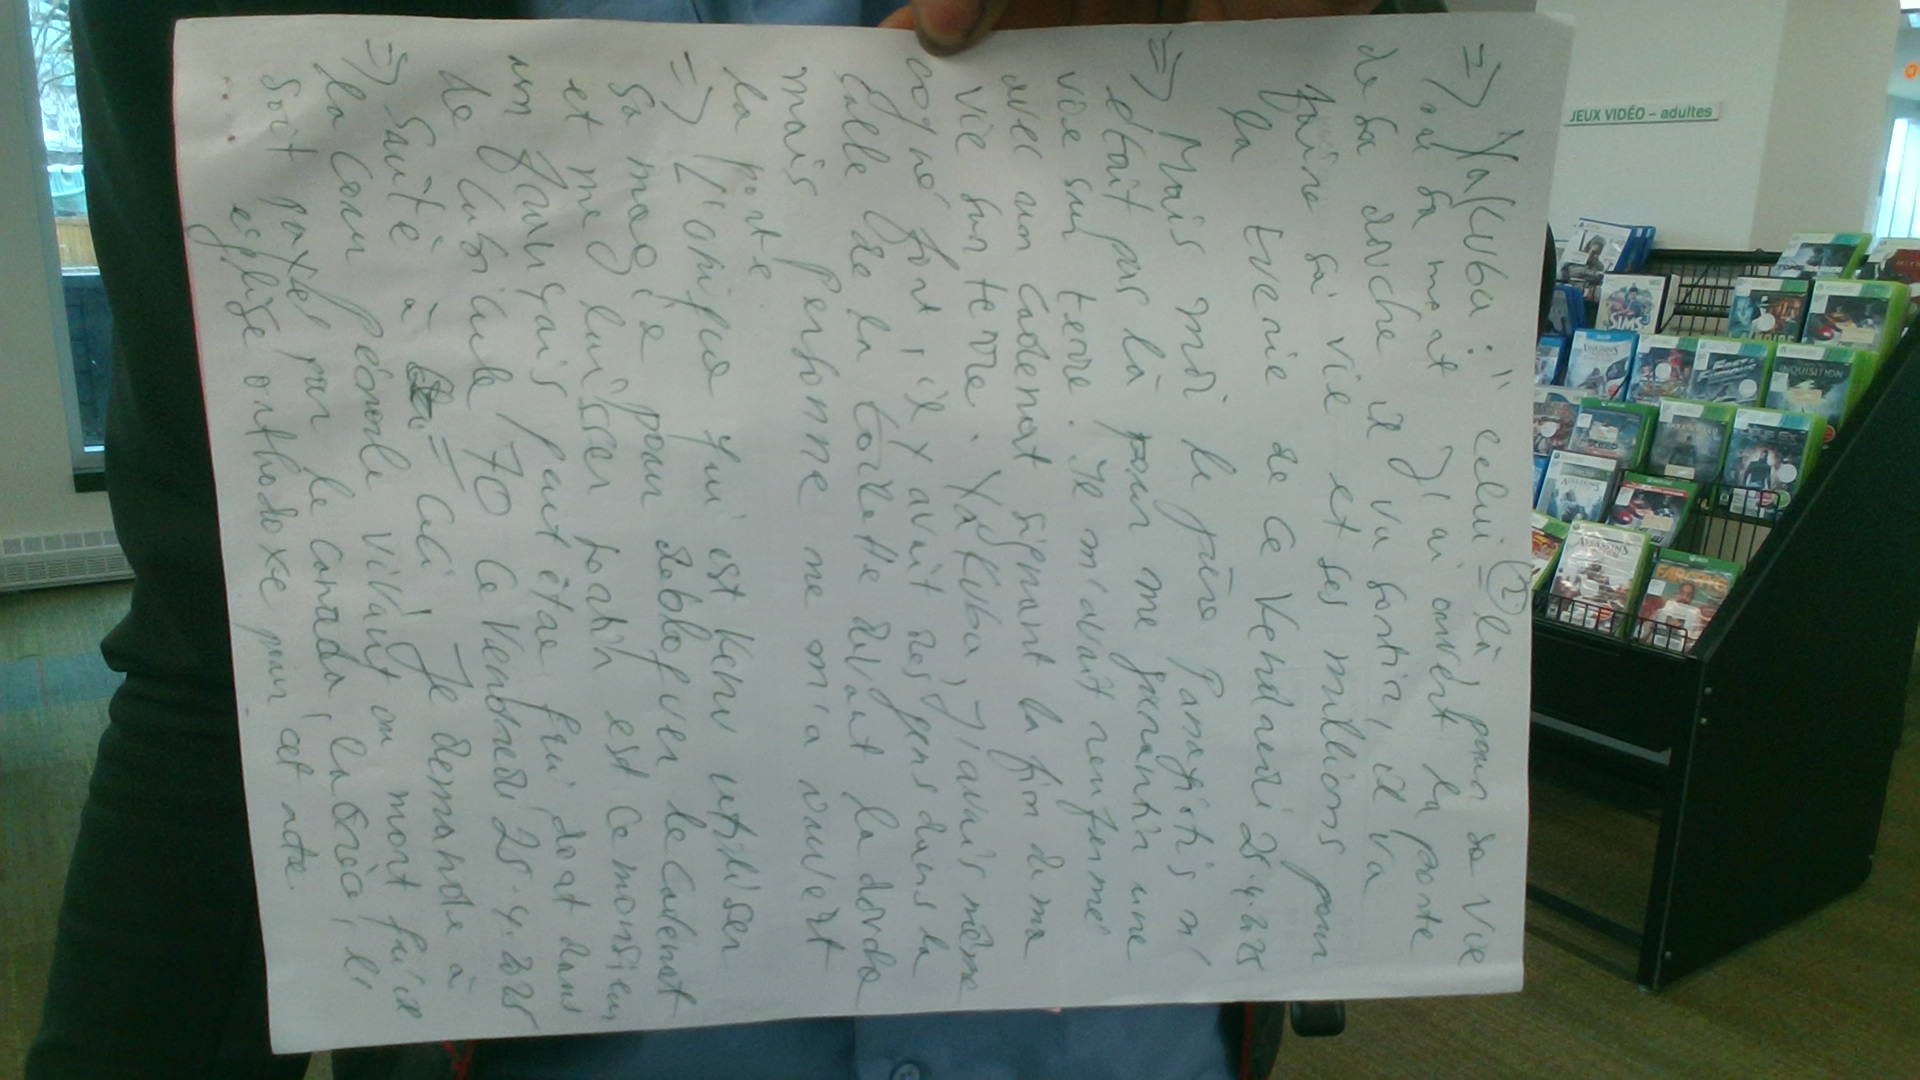 => Yakuba : " celui - là pour sa vie
ou sa mort J'ai ouvert la porte
de sa douche il va sortir, il va
faire sa vie et ses millions pour
la tuerie de ce Vendredi 25.4.2025
=> Mais moi le père Panagiotis n'
était pas là pour me garantir une
vie sur terre. Il m'avait renfermé
avec un cadenat signant la fin de ma
vie sur terre. Yakuba, J'avais même
cogné fort, il y avait des gens dans la
salle de la toilette devant la douche
mais personne ne m'a ouvert
la porte.
=> L'orifice qui est venu utiliser
sa magie pour débloquer le cadenat
et me laisser sortir est ce monsieur
un français peut être qui doat dans
le cubicule 70 ce Vendredi 25.4.2025
=> Suite à = ceci Je demande à
la cour Pénale vivant ou mort qu'il
soit payés par le canada, la Grèce, l'
.... église orthodoxe pour cet acte.
JEUX VIDÉO – adultes
SIMS
INQUISITION